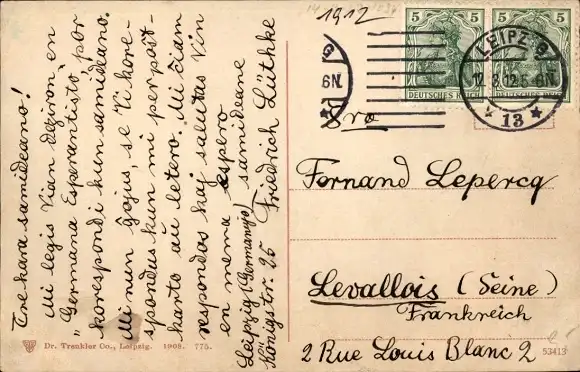 Tre kara samideano!
Mi legis Vian deziron en
"Germana Esperantisto", por
korespondi kun samideano.
Mi nun ĝojus, se Vi kore-
spondus kun mi per post-
karto aŭ letero. Mi ĉiam
respondas kaj salutas Vin
en nema espero
samideane
Leipzig (Germanujo)
Königstr. 25 Friedrich Lüthke
Dr. Trenkler Co., Leipzig. 1908. 775.
1912
5 5
5 5
DEUTSCHES REICH
DEUTSCHES REICH
6N.
LEIPZIG
12.8.12.5-6N.
* 13 *
Sro
Fernand Lepercq
Levallois (Seine)
Frankreich
2 Rue Louis Blanc 2
53413